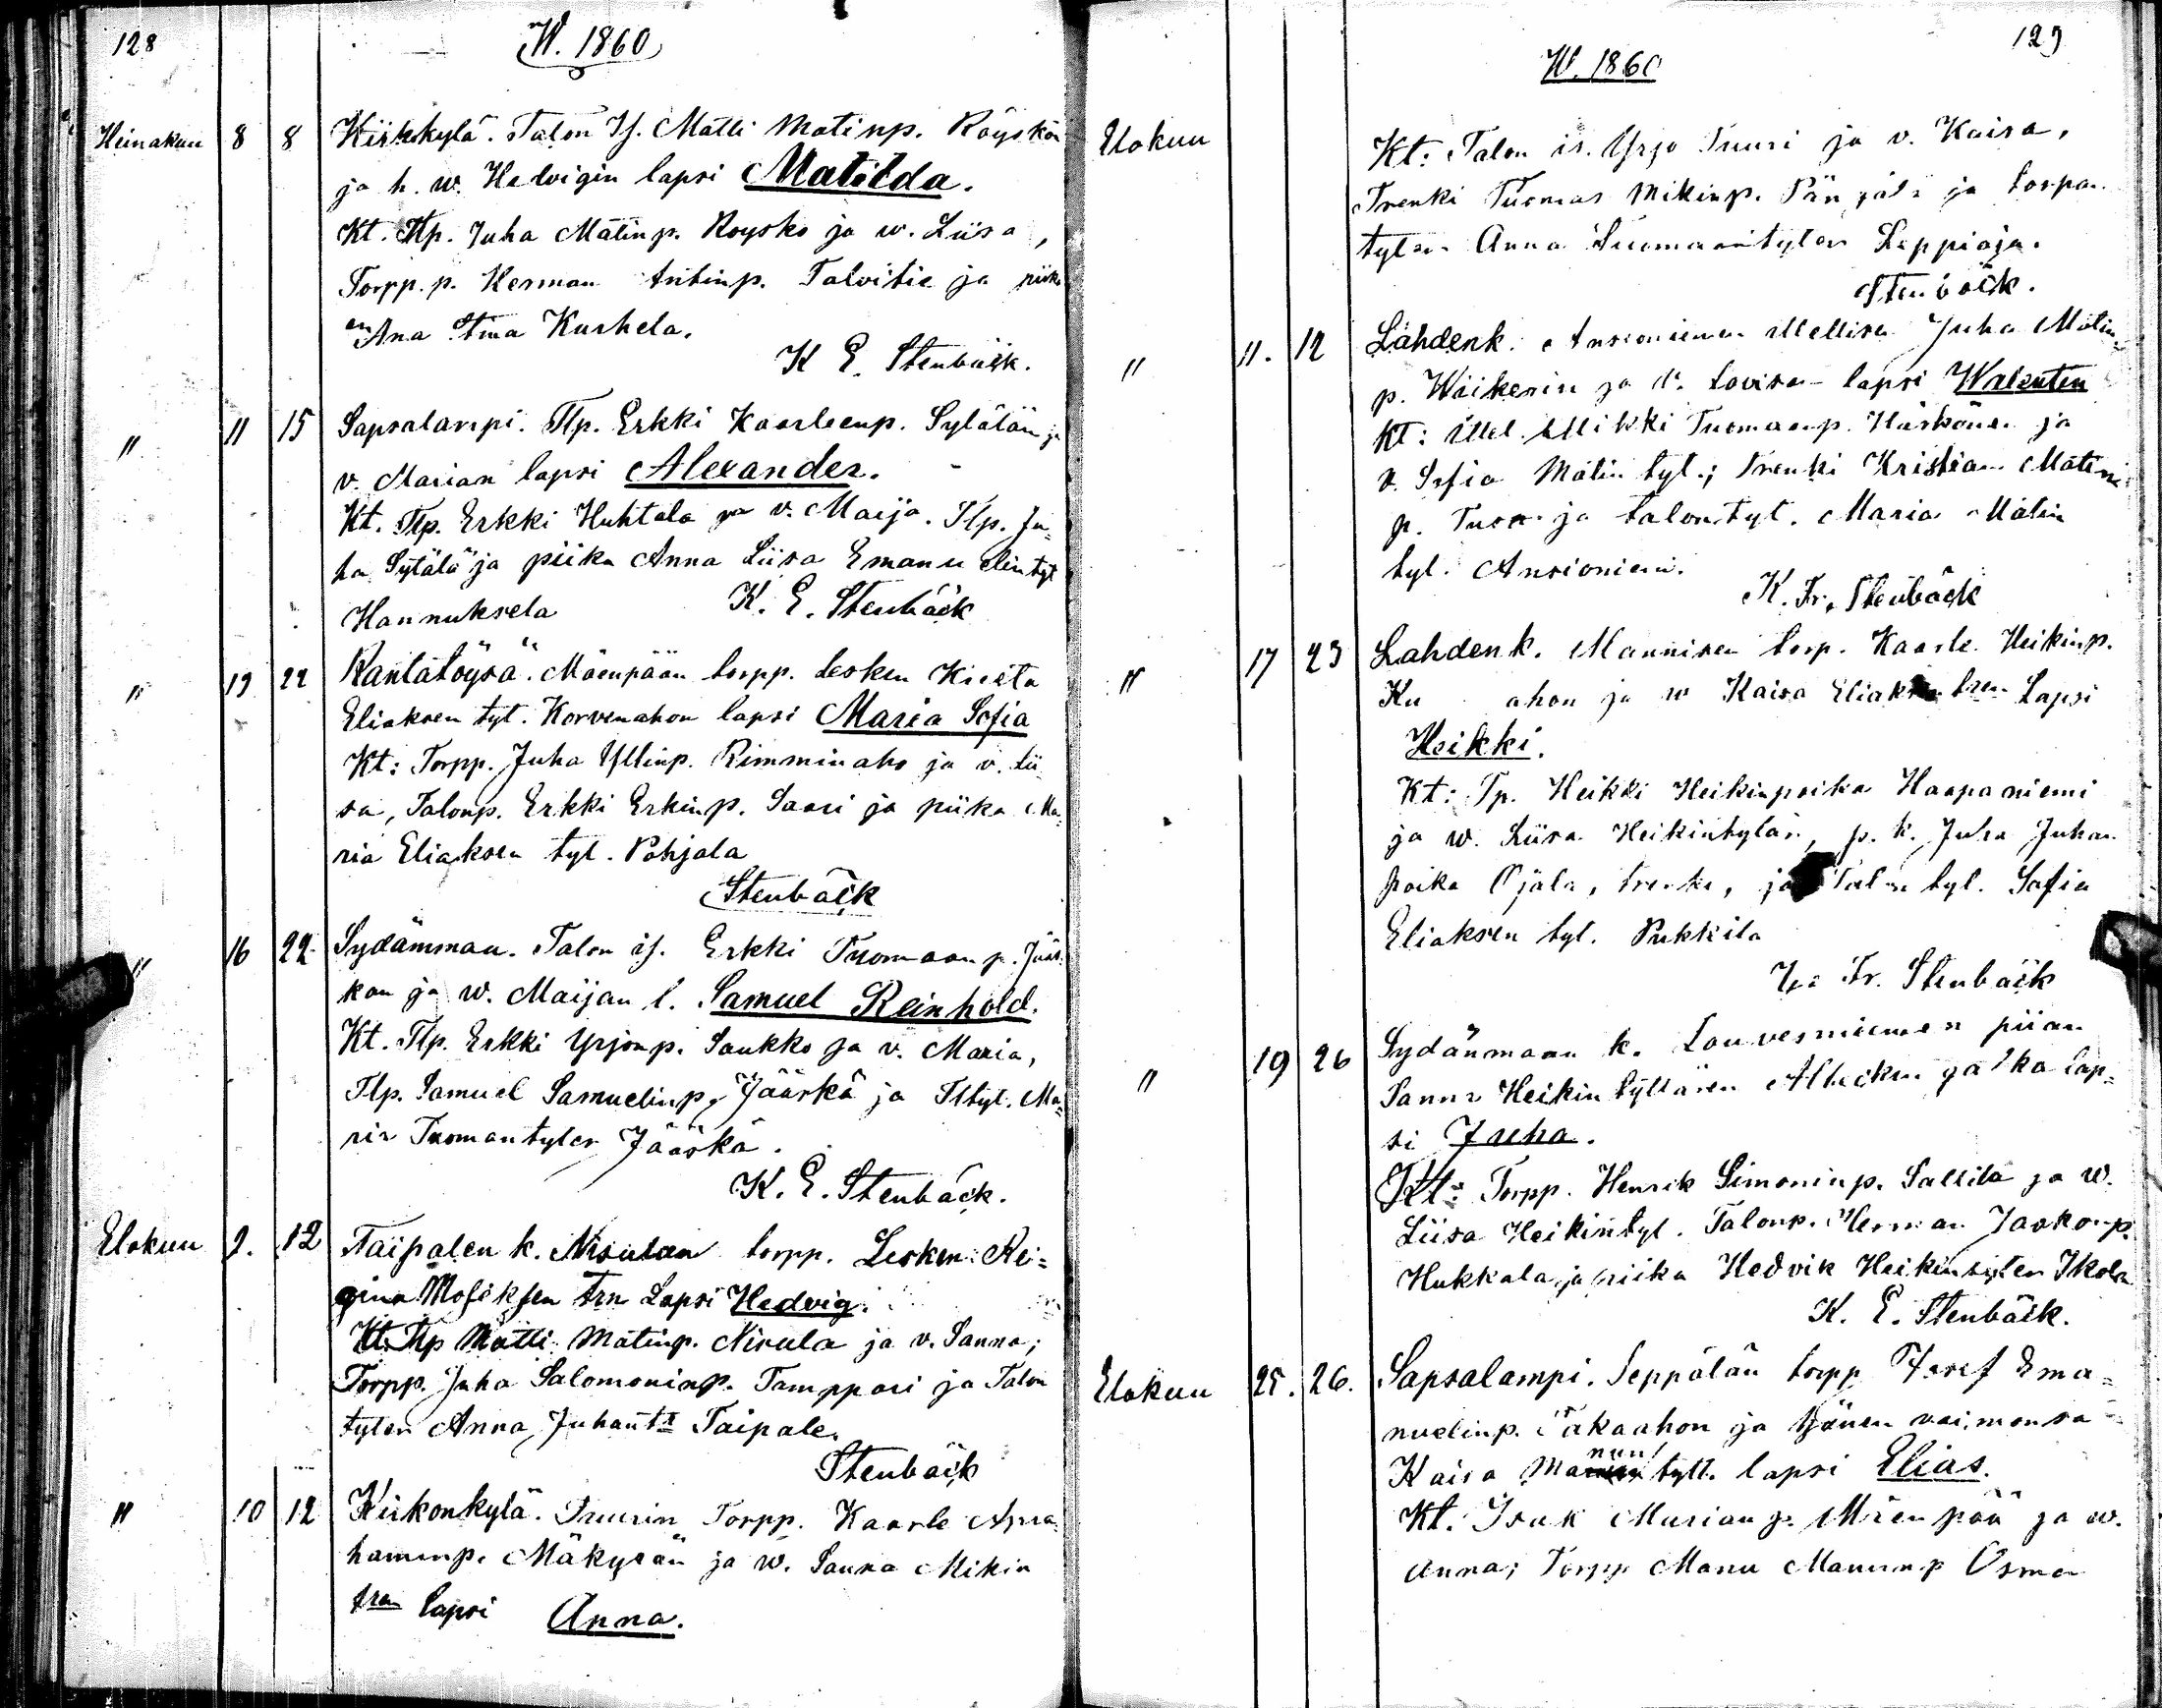 128
W. 1860
Heinakuu 8 8 Kirkkylä. Talon Is. Matti Matinp. Röyskön
ja h. w. Hedvigin lapsi Matilda.
Kt. Tlp. Juha Matinp. Röyskö ja w. Liisa,
Torpp. p. Herman Antinp. Talvitie ja piika
en Ana Stina Kurhela.
K E. Stenbäck.
" 11 15 Sapsalampi. Tlp. Erkki Kaarleenp. Sytälän ja
v. Marian lapsi Alexander.
Kt. Tlp. Erkki Huhtala ja v. Maija. Tlp. Ju=
ha Sytälä ja piika Anna Liisa Emanuelin tyt
Hannuksela K. E. Stenbäck
" 19 22 Rantatöysä. Mäenpään torpp. Lesken
Eliaksen tyt. Korvenahon lapsi Maria Sofia
Kt: Torpp. Juha Yllinp. Rimminaho ja v. Lii
sa, Talonp. Erkki Erkinp. Saari ja piika Ma=
ria Eliaksen tyt. Pohjala
Stenbäck
" 16 22 Sydämmaa. Talon is. Erkki Tuomaan p. Jääs=
kön ja w. Maijan l. Samuel Reinhold.
Kt. Tlp. Erkki Yrjönp. Saukko ja v. Maria,
Tlp. Samuel Samuelinp. Jääskä ja Tltyt. Ma=
ria Tuomantyten Jääskä.
K. E. Stenbäck.
Elokuu 9. 12 Taipalen k. Nisulan torpp. Lesken Re=
gina Moseksen trn Lapsi Hedvig.
Kt. Tlp Matti Matinp. Nisula ja v. Sanna;
Torpp. Juha Salomoninp. Tamppari ja Talon
tyten Anna Juhant Taipale.
Stenbäck
" 10 12 Kirkonkylä. Tuurin Torpp. Kaarle Apra
haminp. Mäkysän ja w. Sanna Mikin
tren lapsi Anna.
129
W. 1860
Elokuu Kt: Talon is. Yrjo Tuuri ja v. Kaisa,
Trenki Tuomas Mikinp. ja torpan
tyten Anna Tuomaantyten Leppioja.
Stenbäck.
" 11. 12 Lahdenk. Ansioniemen Mellisen Juha Matin=
p. Wiikerin ja v. Lovisa lapsi Walenten
Kt: Mel. Mikki Tuomaanp. Härkönen ja
v. Sofia Matin tyt.; trenki Kristian Matin
p. Tuuri ja talon tyt. Maria Matin
tyt. Ansioniemi.
K. Fr. Stenbäck
" 17 23 Lahdenk. Mannisen torp. Kaarle Heikinp.
Ku ahon ja w Kaisa Eliaksen tren Lapsi
Heikki.
Kt: Tp. Heikki Heikinpoika Haapaniemi
ja w. Liisa Heikintytär, p. k. Juha Juhan
poika Ojala, trenki, ja Talon tyt. Sofia
Eliaksen tyt. Pukkila
Fr. Stenbäck
" 19 26 Sydänmaan k. Louvesniemen piian
Sanna Heikin tyttären lap=
si Juha.
Kt: Torpp. Henrik Simoninp. Sallila ja w.
Liisa Heikintyt. Talonp. Herman Jaakonp.
Hukkala ja piika Hedvik Heikintyten Ikola
K. E. Stenbäck.
Elokuu 25. 26. Sapsalampi. Seppälän torpp Josef Ema=
nuelinp. Takaahon ja hänen vaimonsa
Kaisa Manun tytt. lapsi Elias.
Kt. Isak Marian p. Mäenpää ja w.
Anna; Torpp Manu Manunp Osma